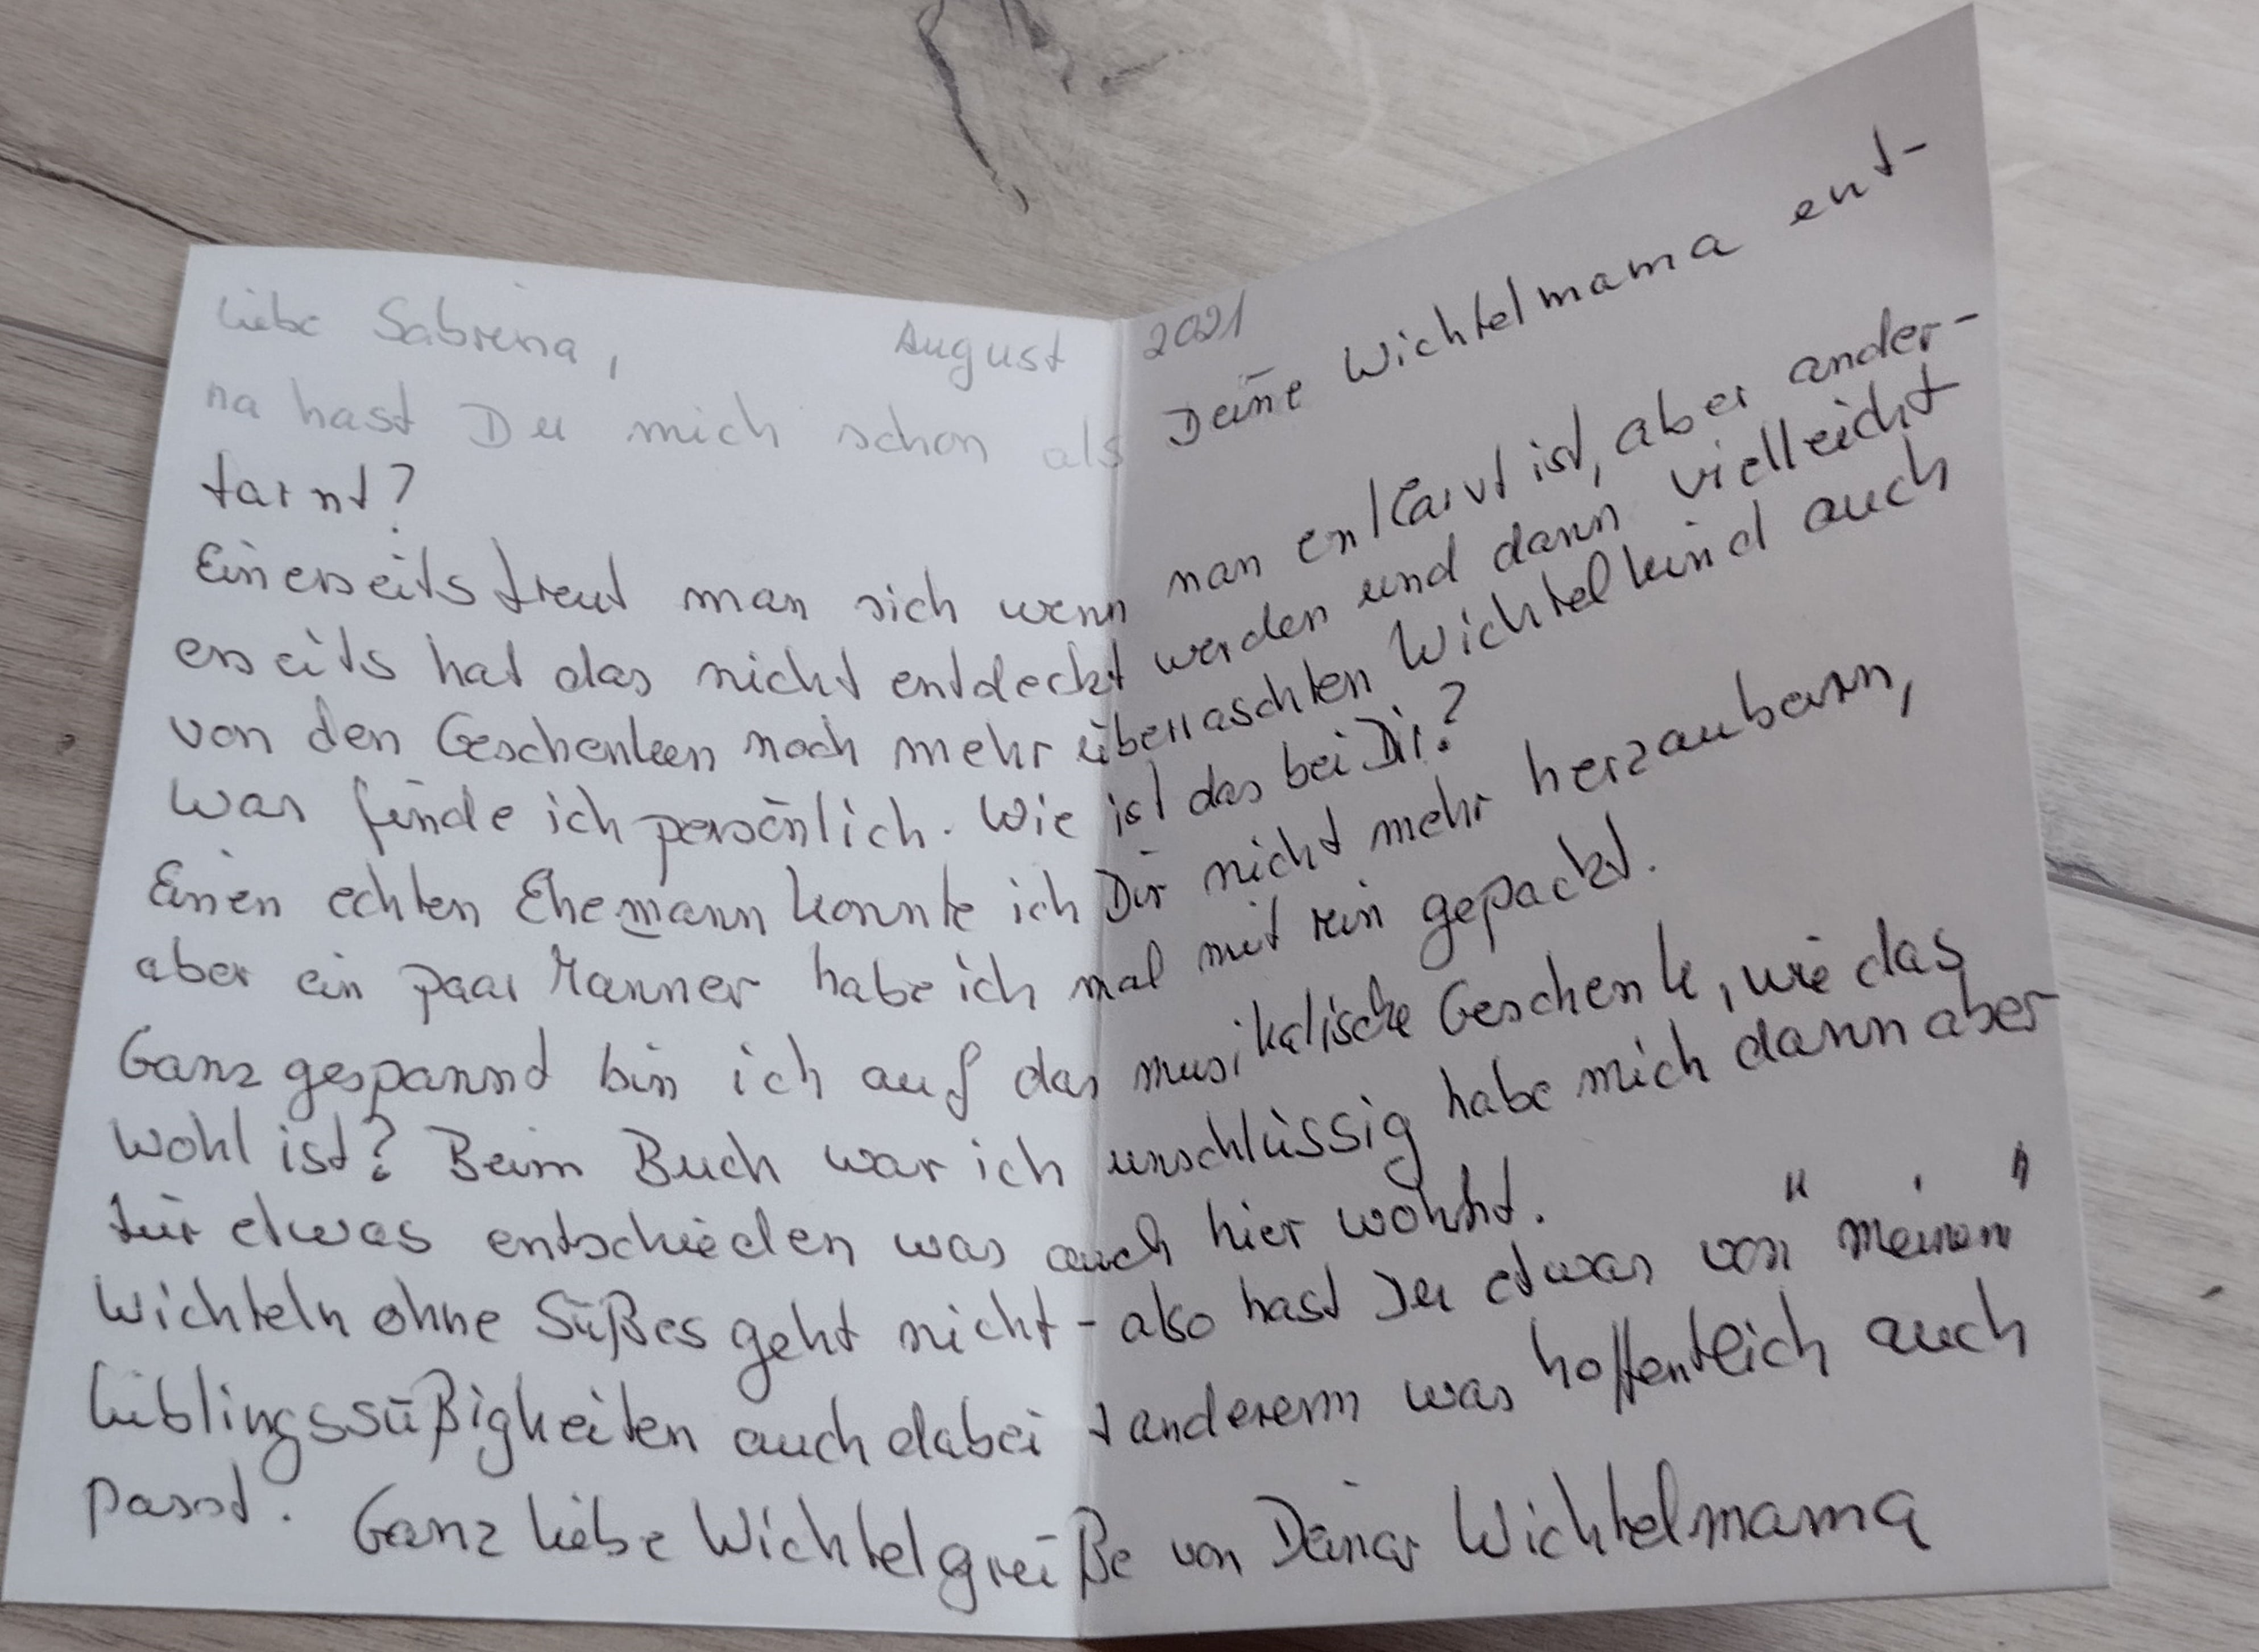 Liebe Sabrina, August 2021
na hast Du mich schon als Deine Wichtelmama ent-
tarnt?
Einerseits freut man sich wenn man entlarvt ist, aber ander-
erseits hat das nicht entdeckt werden und dann vielleicht
von den Geschenken noch mehr überraschten Wichtelkind auch
was finde ich persönlich. Wie ist das bei Dir?
Einen echten Ehemann konnte ich Dir nicht mehr herzaubern,
aber ein paar Männer habe ich mal mit rein gepackt.
Ganz gespannd bin ich auf das musikalische Geschenk, wie das
wohl ist? Beim Buch war ich unschlüssig habe mich dann aber
für etwas entschieden was auch hier wohnt.
Wichteln ohne Süßes geht nicht - also hast Du etwas von "meinen"
Lieblingssüßigkeiten auch dabei + anderem was hoffentlich auch
passt. Ganz liebe Wichtelgrüße von Deiner Wichtelmama